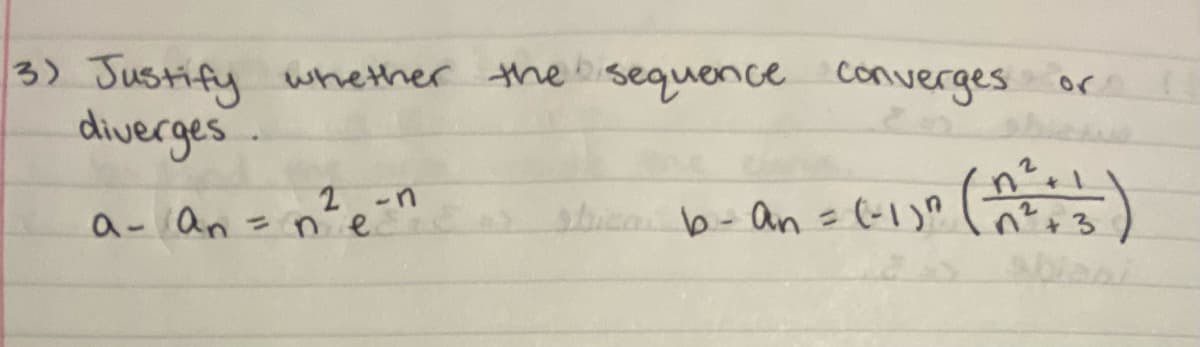 3) Justify whether the sequence converges or
diverges.
a- an = n²e⁻ⁿ b- an = (-1)ⁿ ((n²+1)/(n²+3))